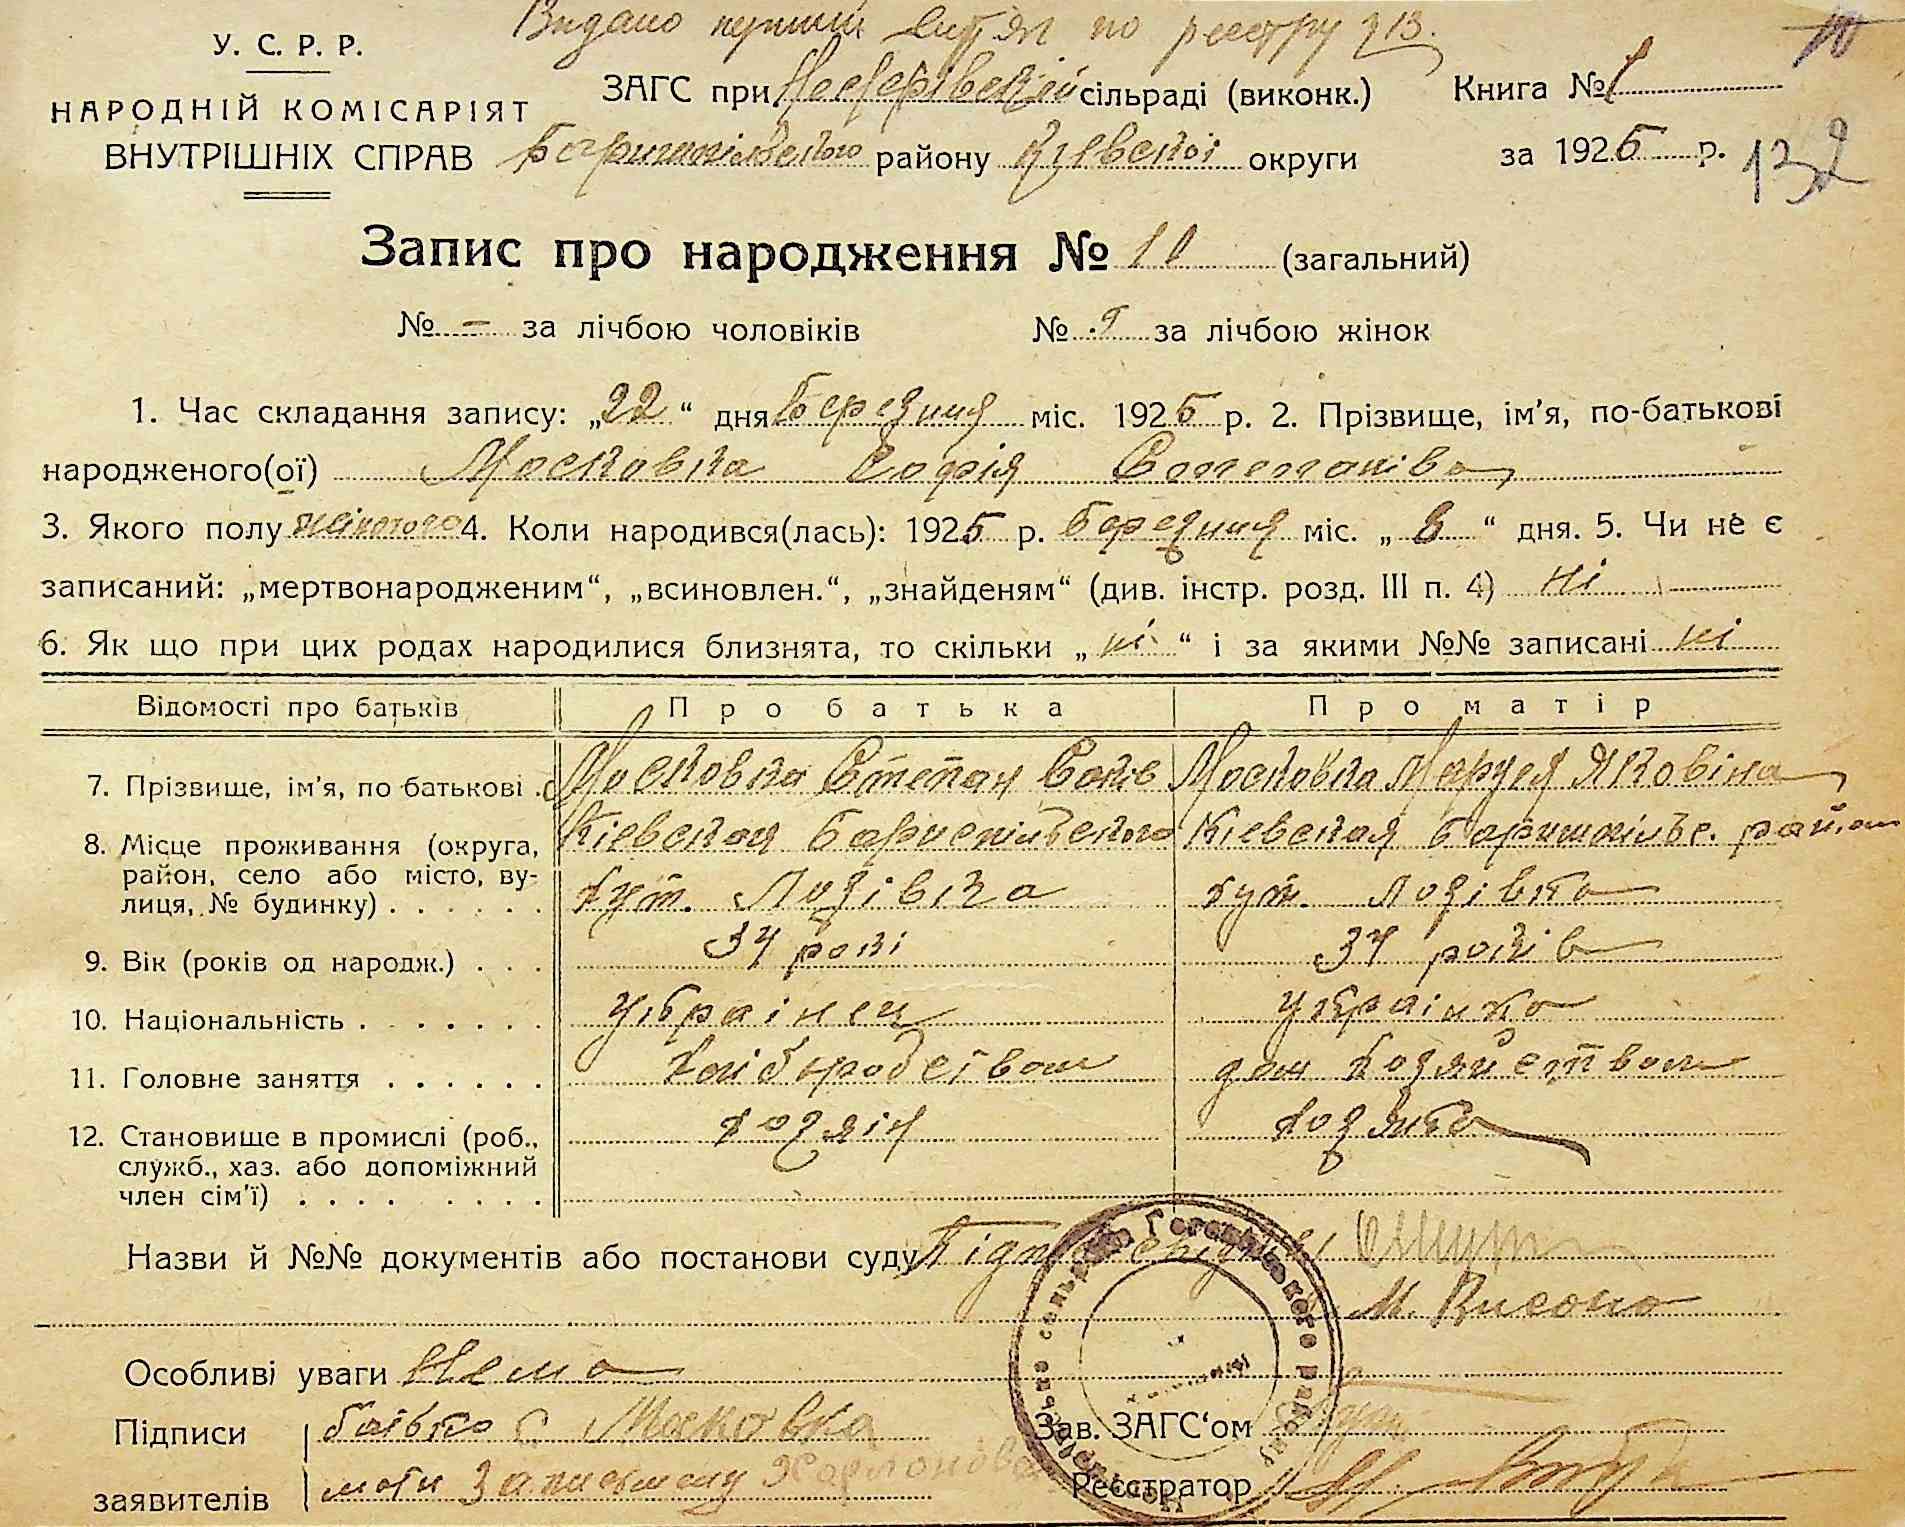 Видано первий витяг по реестру 213.
У. С. Р. Р.
НАРОДНІЙ КОМІСАРІЯТ
ВНУТРІШНІХ СПРАВ
ЗАГС при сільраді (виконк.)
району Київскоі округи
Книга № 1
за 1925 р.
132
Запис про народження № 10 (загальний)
№ – за лічбою чоловіків № за лічбою жінок
1. Час складання запису: „22“ дня березиня міс. 1925 р. 2. Прізвище, ім'я, по-батькові
народженого(ої) Московка Софія Степанівна
3. Якого полу жіночого 4. Коли народився(лась): 1925 р. березиня міс. „8“ дня. 5. Чи не є
записаний: „мертвонародженим“, „всиновлен.“, „знайденям“ (див. інстр. розд. III п. 4) ні
6. Як що при цих родах народилися близнята, то скільки „ні“ і за якими №№ записані ні
Відомості про батьків Про батька Про матір
7. Прізвище, ім'я, по батькові . Московка Степан Московка Маруся Яковівна
8. Місце проживання (округа, Кіевская Бариспильского Кіевская Баришпільс. район
район, село або місто, ву-
лиця, № будинку) . . . . . . хут. Лозівка хут. Лозівка
9. Вік (років од народж.) . . . 34 рокі 34 років
10. Національність . . . . . . . українец українка
11. Головне заняття . . . . . . хлібородством дом хозяйством
12. Становище в промислі (роб., хозяїн хозяйка
служб., хаз. або допоміжний
член сім'ї) . . . . . . . .
Назви й №№ документів або постанови суду
Особливі уваги Нема
Підписи батько С Московка
заявителів мати
Зав. ЗАГС‘ом
Реєстратор